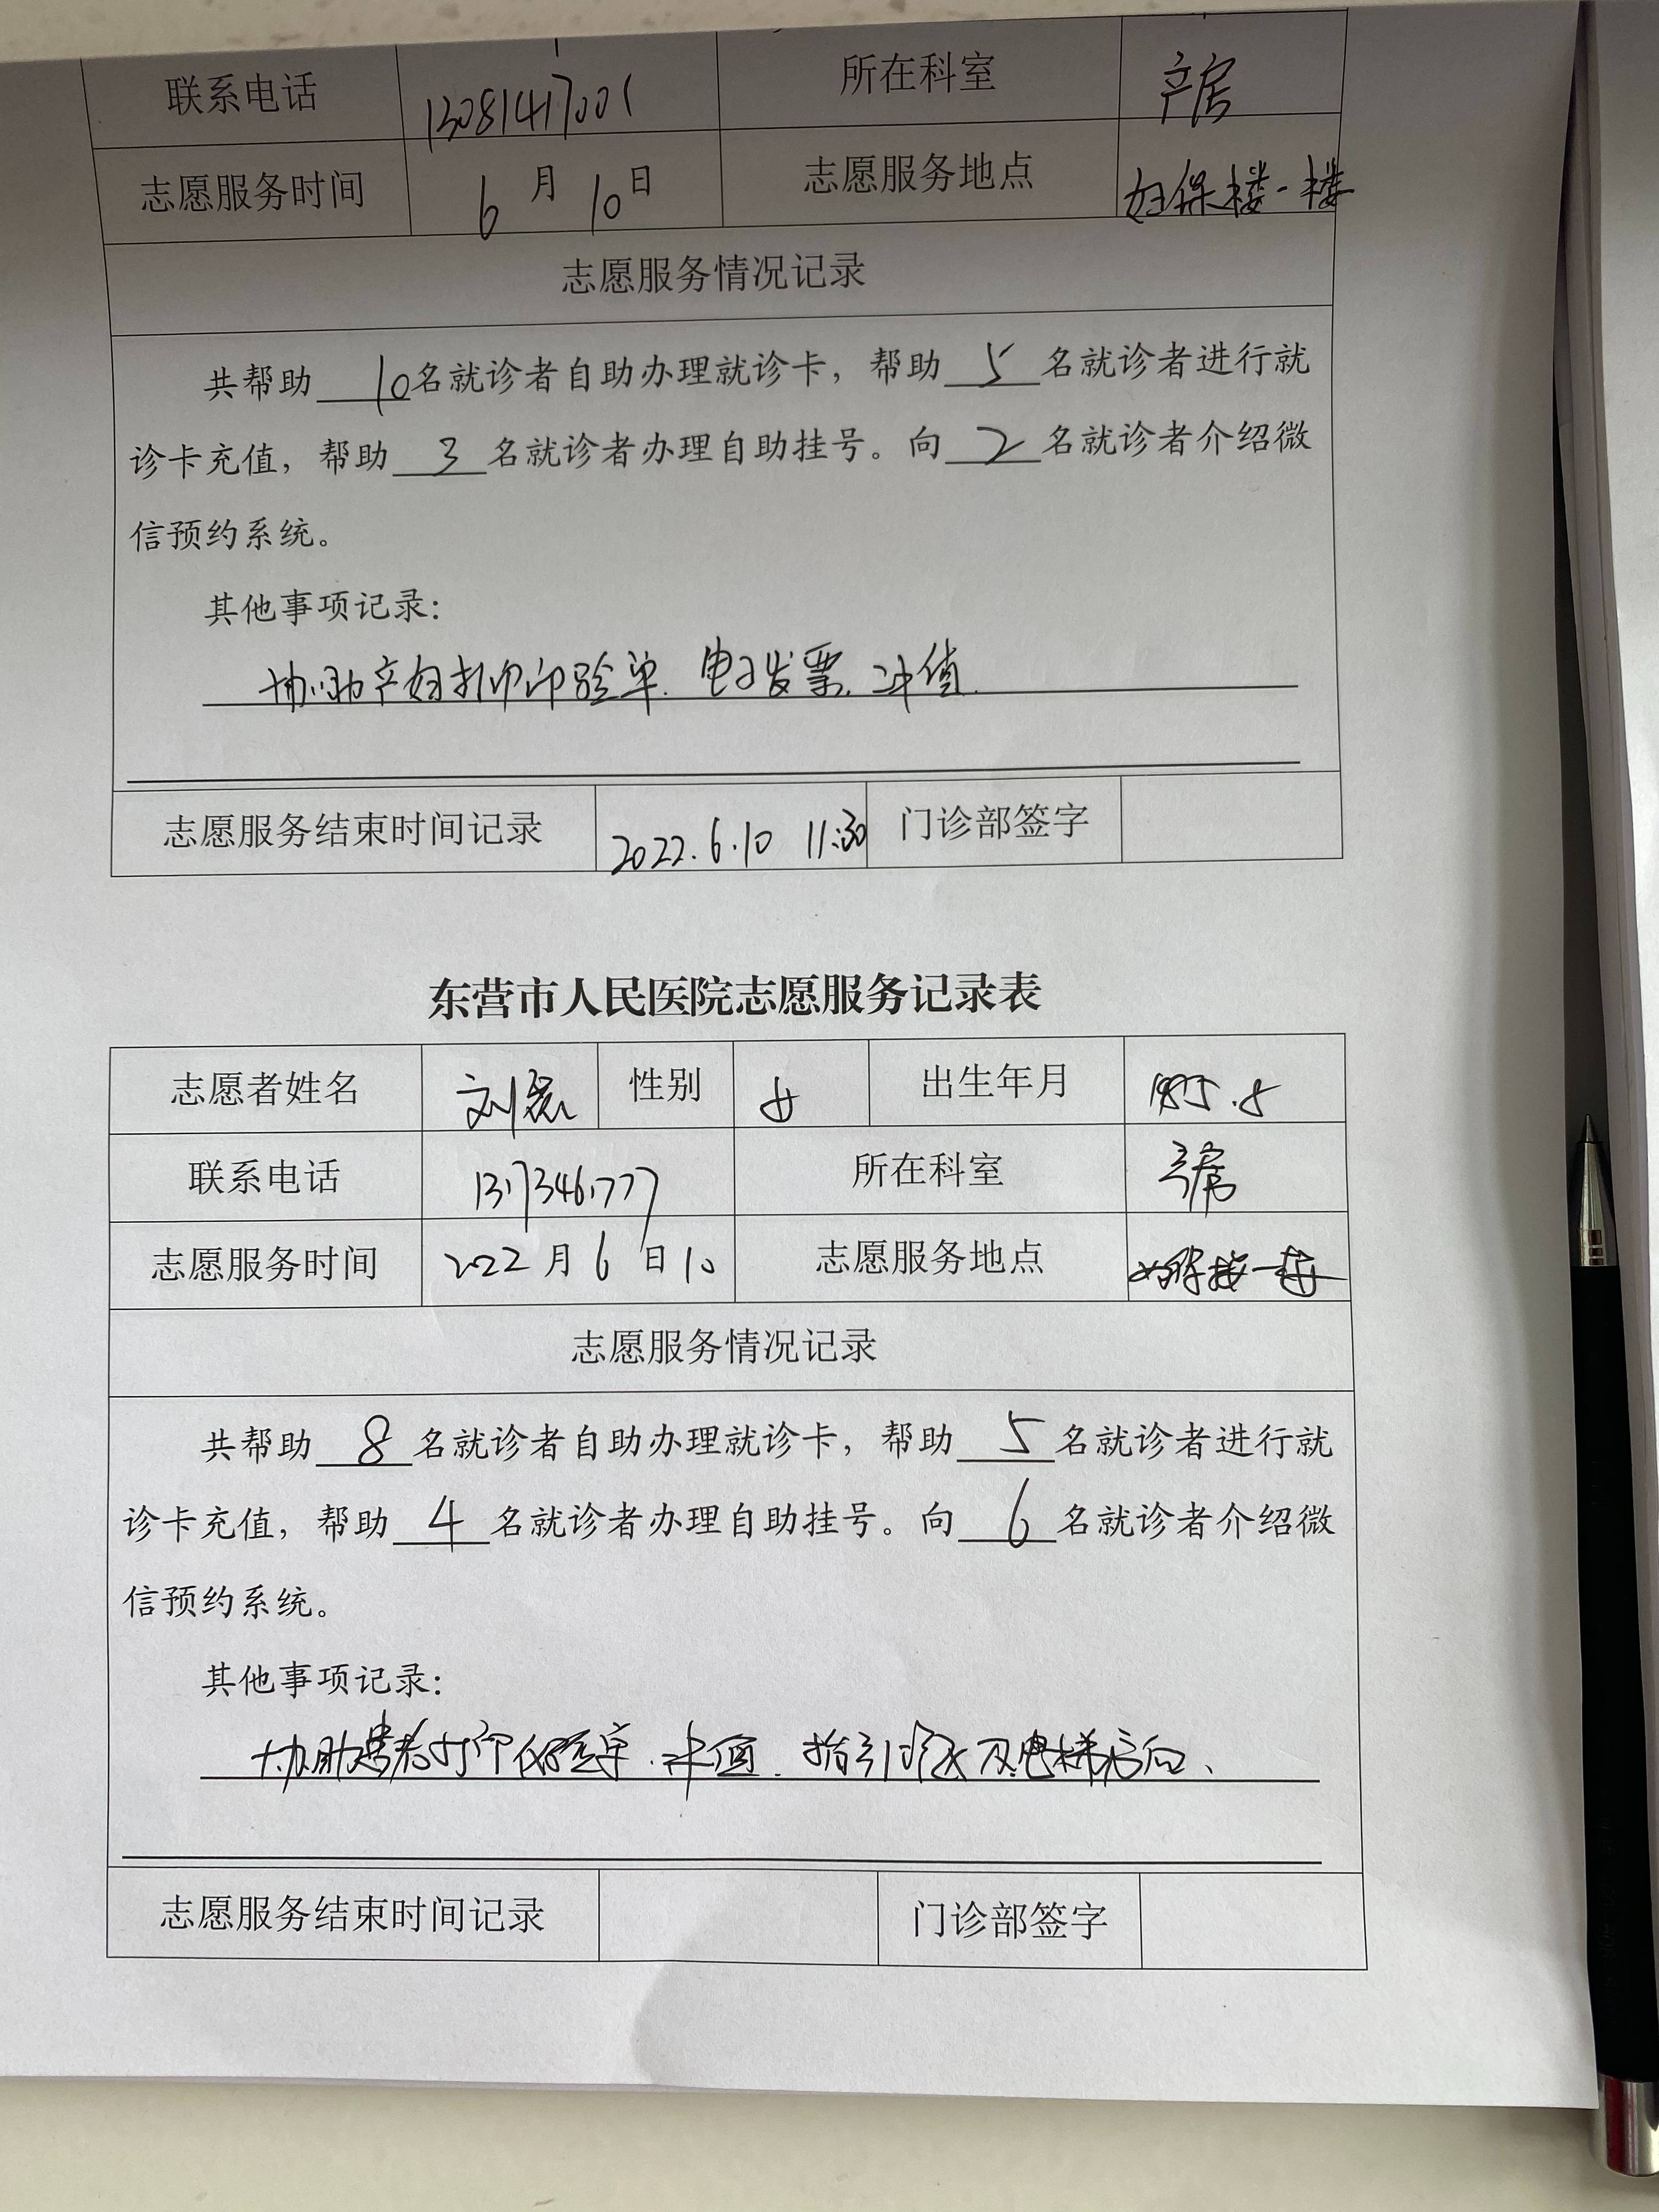 联系电话 13081417001 所在科室 产房
志愿服务时间 6月10日 志愿服务地点 妇保楼一楼
志愿服务情况记录
共帮助10名就诊者自助办理就诊卡，帮助5名就诊者进行就
诊卡充值，帮助3名就诊者办理自助挂号。向2名就诊者介绍微
信预约系统。
其他事项记录：
协助产妇打印验单.电子发票.冲值.
志愿服务结束时间记录 2022.6.10 11:30 门诊部签字
东营市人民医院志愿服务记录表
志愿者姓名 刘 性别 女 出生年月
联系电话 所在科室
志愿服务时间 2022月6日10 志愿服务地点 妇保楼一楼
志愿服务情况记录
共帮助8名就诊者自助办理就诊卡，帮助5名就诊者进行就
诊卡充值，帮助4名就诊者办理自助挂号。向6名就诊者介绍微
信预约系统。
其他事项记录：
协助患者打印化验单.冲值.指引诊区及电梯方向、
志愿服务结束时间记录 门诊部签字